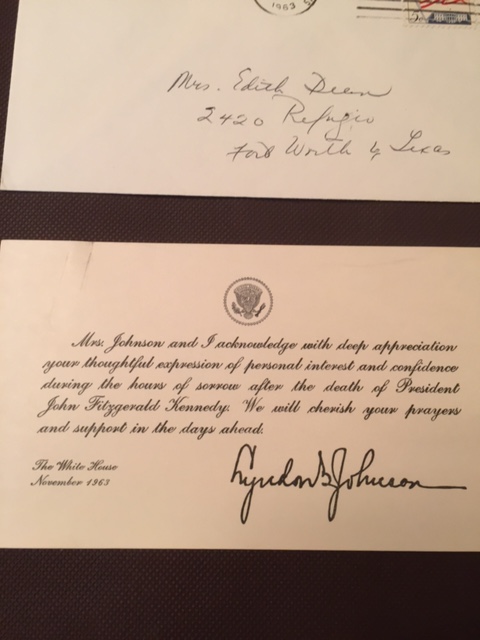 1963
5¢
Mrs. Edith Deen
2420 Refugio
Fort Worth 6, Texas
Mrs. Johnson and I acknowledge with deep appreciation
your thoughtful expression of personal interest and confidence
during the hours of sorrow after the death of President
John Fitzgerald Kennedy. We will cherish your prayers
and support in the days ahead.
The White House
November 1963
Lyndon B. Johnson